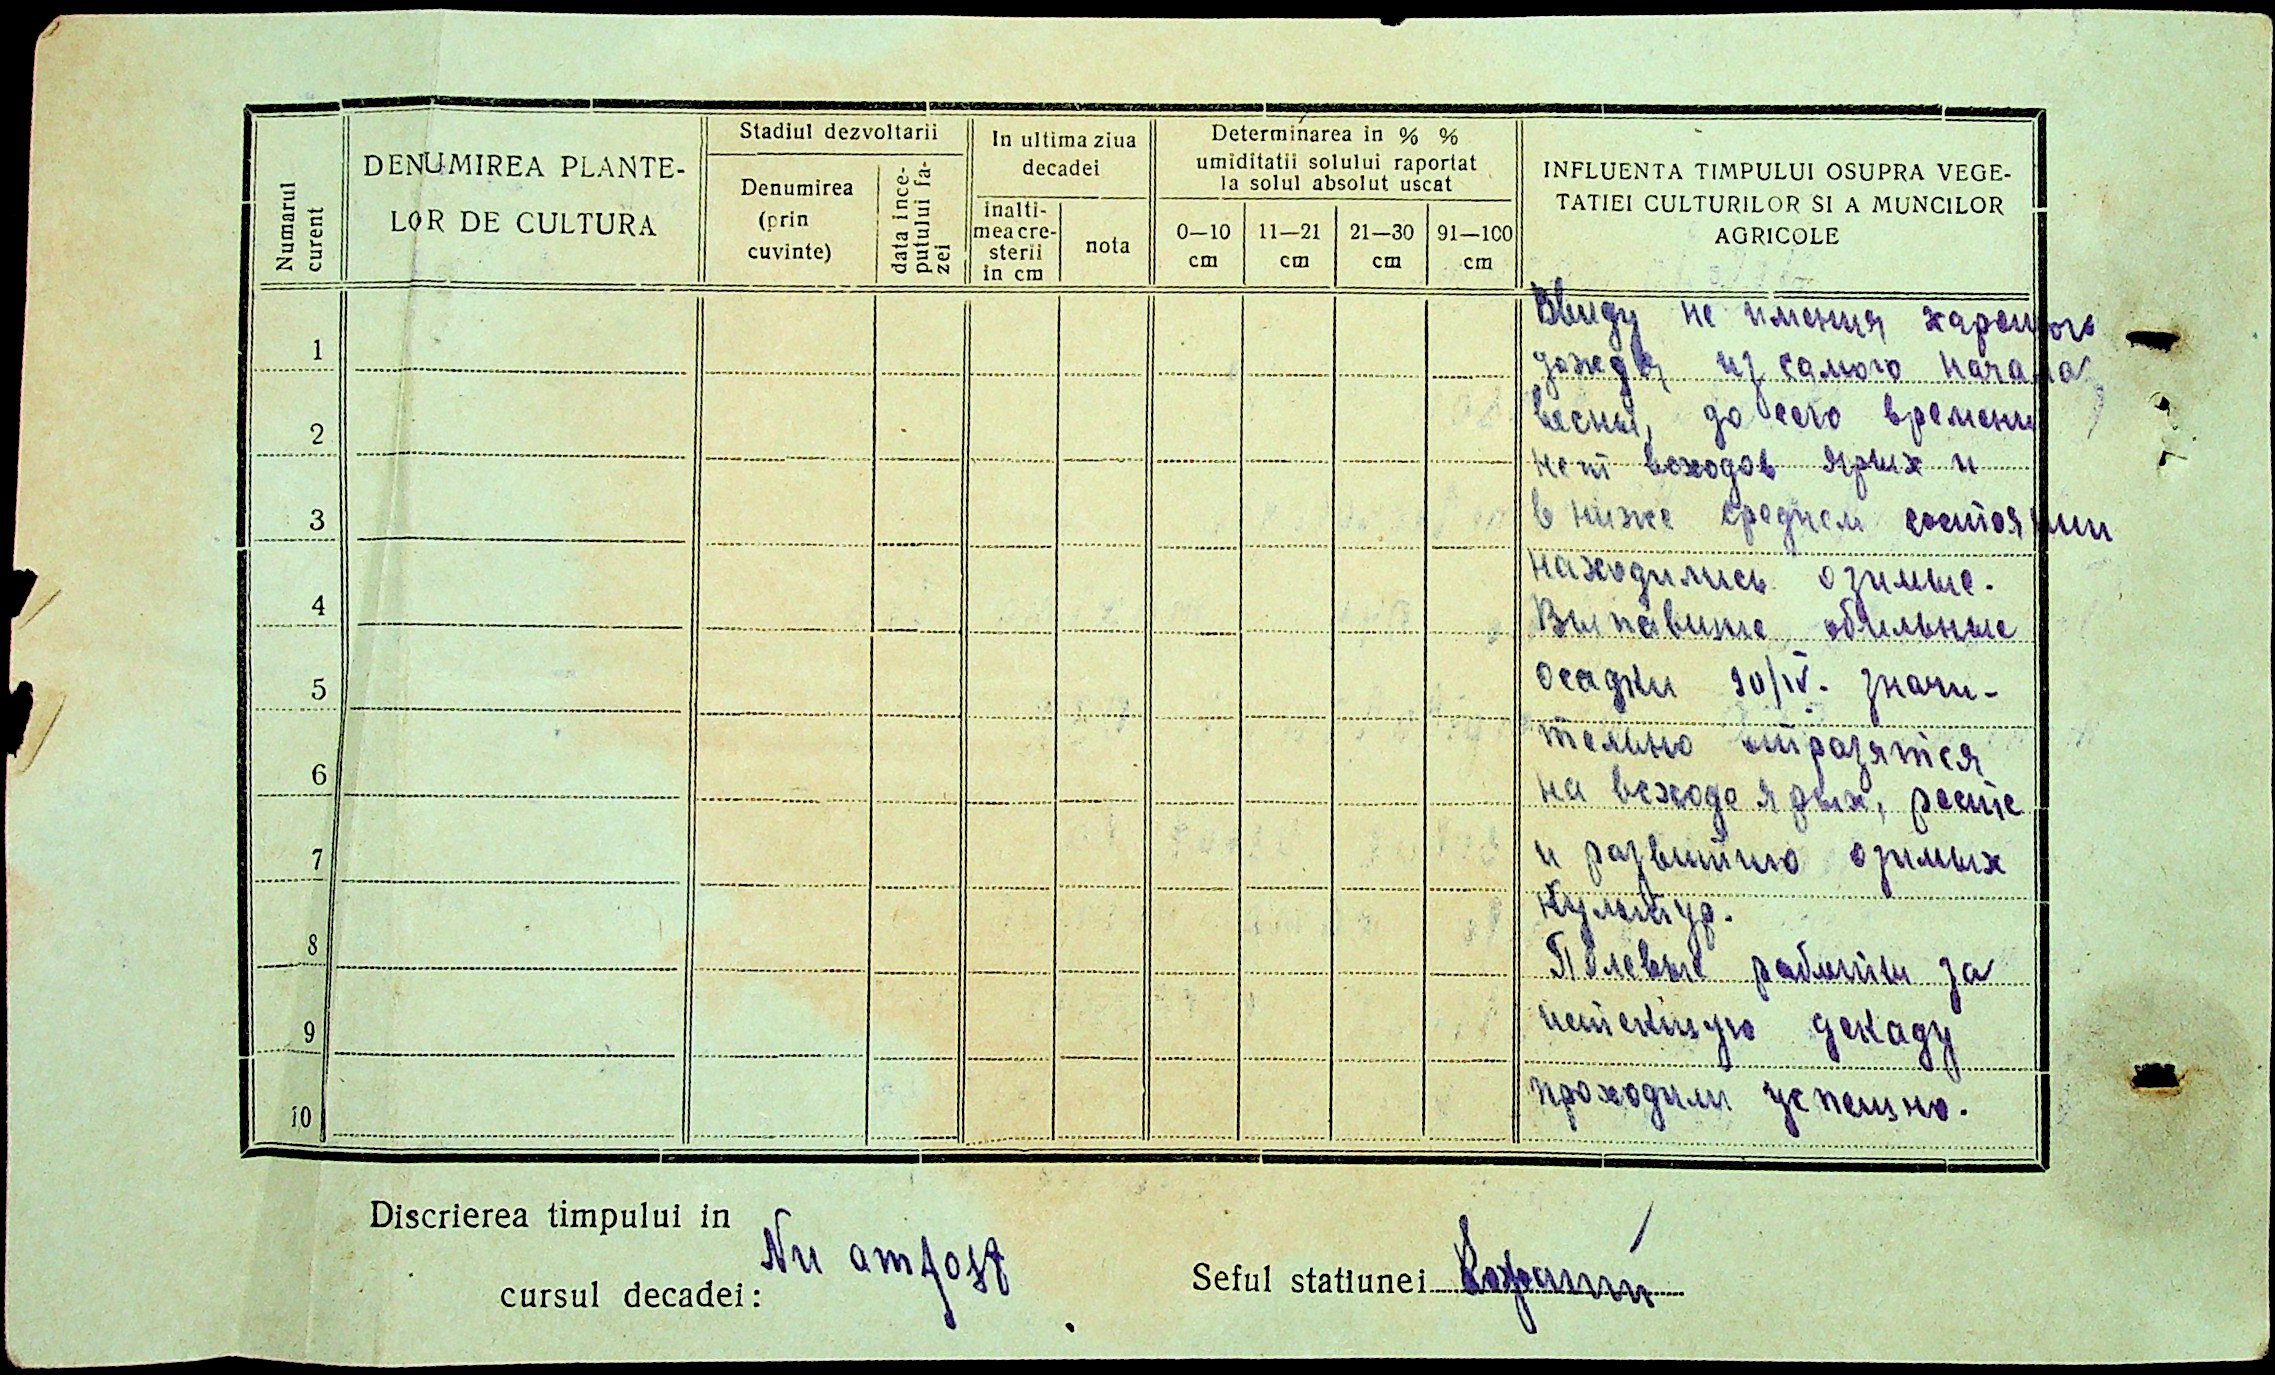 Numarul
curent
DENUMIREA PLANTE-
LOR DE CULTURA
Stadiul dezvoltarii
Denumirea
(prin
cuvinte)
data ince-
putului fa-
zei
In ultima ziua
decadei
inalti-
mea cre-
sterii
in cm
nota
Determinarea in % %
umiditatii solului raportat
la solul absolut uscat
0—10
cm
11—21
cm
21—30
cm
91—100
cm
INFLUENTA TIMPULUI OSUPRA VEGE-
TATIEI CULTURILOR SI A MUNCILOR
AGRICOLE
1
2
3
4
5
6
7
8
9
10
Ввиду не имения харошого
дождя, из самого начала
весны, до сего времени
нет всходов ярых и
в ниже среднем состоянии
находились озимые.
Выпавшие обильные
осадки 20/IV. значи-
тельно отразятся
на всходе ярых, росте
и развитию озимых
культур.
Полевые работы за
истекшую декаду
проходили успешно.
Discrierea timpului in
cursul decadei:
Nu am fost
Seful statiunei